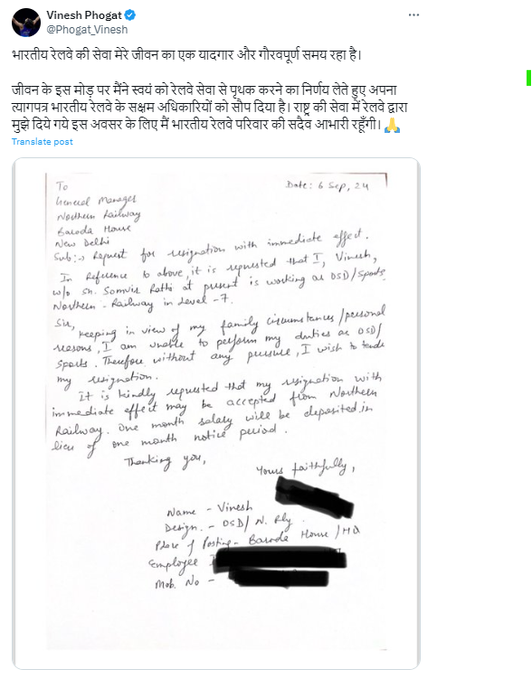 Vinesh Phogat
@Phogat_Vinesh
भारतीय रेलवे की सेवा मेरे जीवन का एक यादगार और गौरवपूर्ण समय रहा है।
जीवन के इस मोड़ पर मैंने स्वयं को रेलवे सेवा से पृथक करने का निर्णय लेते हुए अपना
त्यागपत्र भारतीय रेलवे के सक्षम अधिकारियों को सौप दिया है। राष्ट्र की सेवा में रेलवे द्वारा
मुझे दिये गये इस अवसर के लिए मैं भारतीय रेलवे परिवार की सदैव आभारी रहूँगी। 🙏
Translate post
To
Date: 6 Sep, 24
General Manager
Northern Railway
Baroda House
New Delhi
Sub:- Request for resignation with immediate effect.
In Reference to above, it is requested that I, Vinesh,
w/o Sh. Somvir Rathi at present is working as OSD/Sports
Northern Railway in Level-7.
Sir,
Keeping in view of my family circumstances/personal
reasons, I am unable to perform my duties as OSD/
Sports. Therefore without any pressure, I wish to tende
my resignation.
It is kindly requested that my resignation with
immediate effect may be accepted from Northern
Railway. One month salary will be deposited in
lieu of one month notice period.
Thanking you,
Yours faithfully,
Name - Vinesh
Design. - OSD/N. Rly
Place of Posting- Baroda House/HQ
Employee
Mob. No -